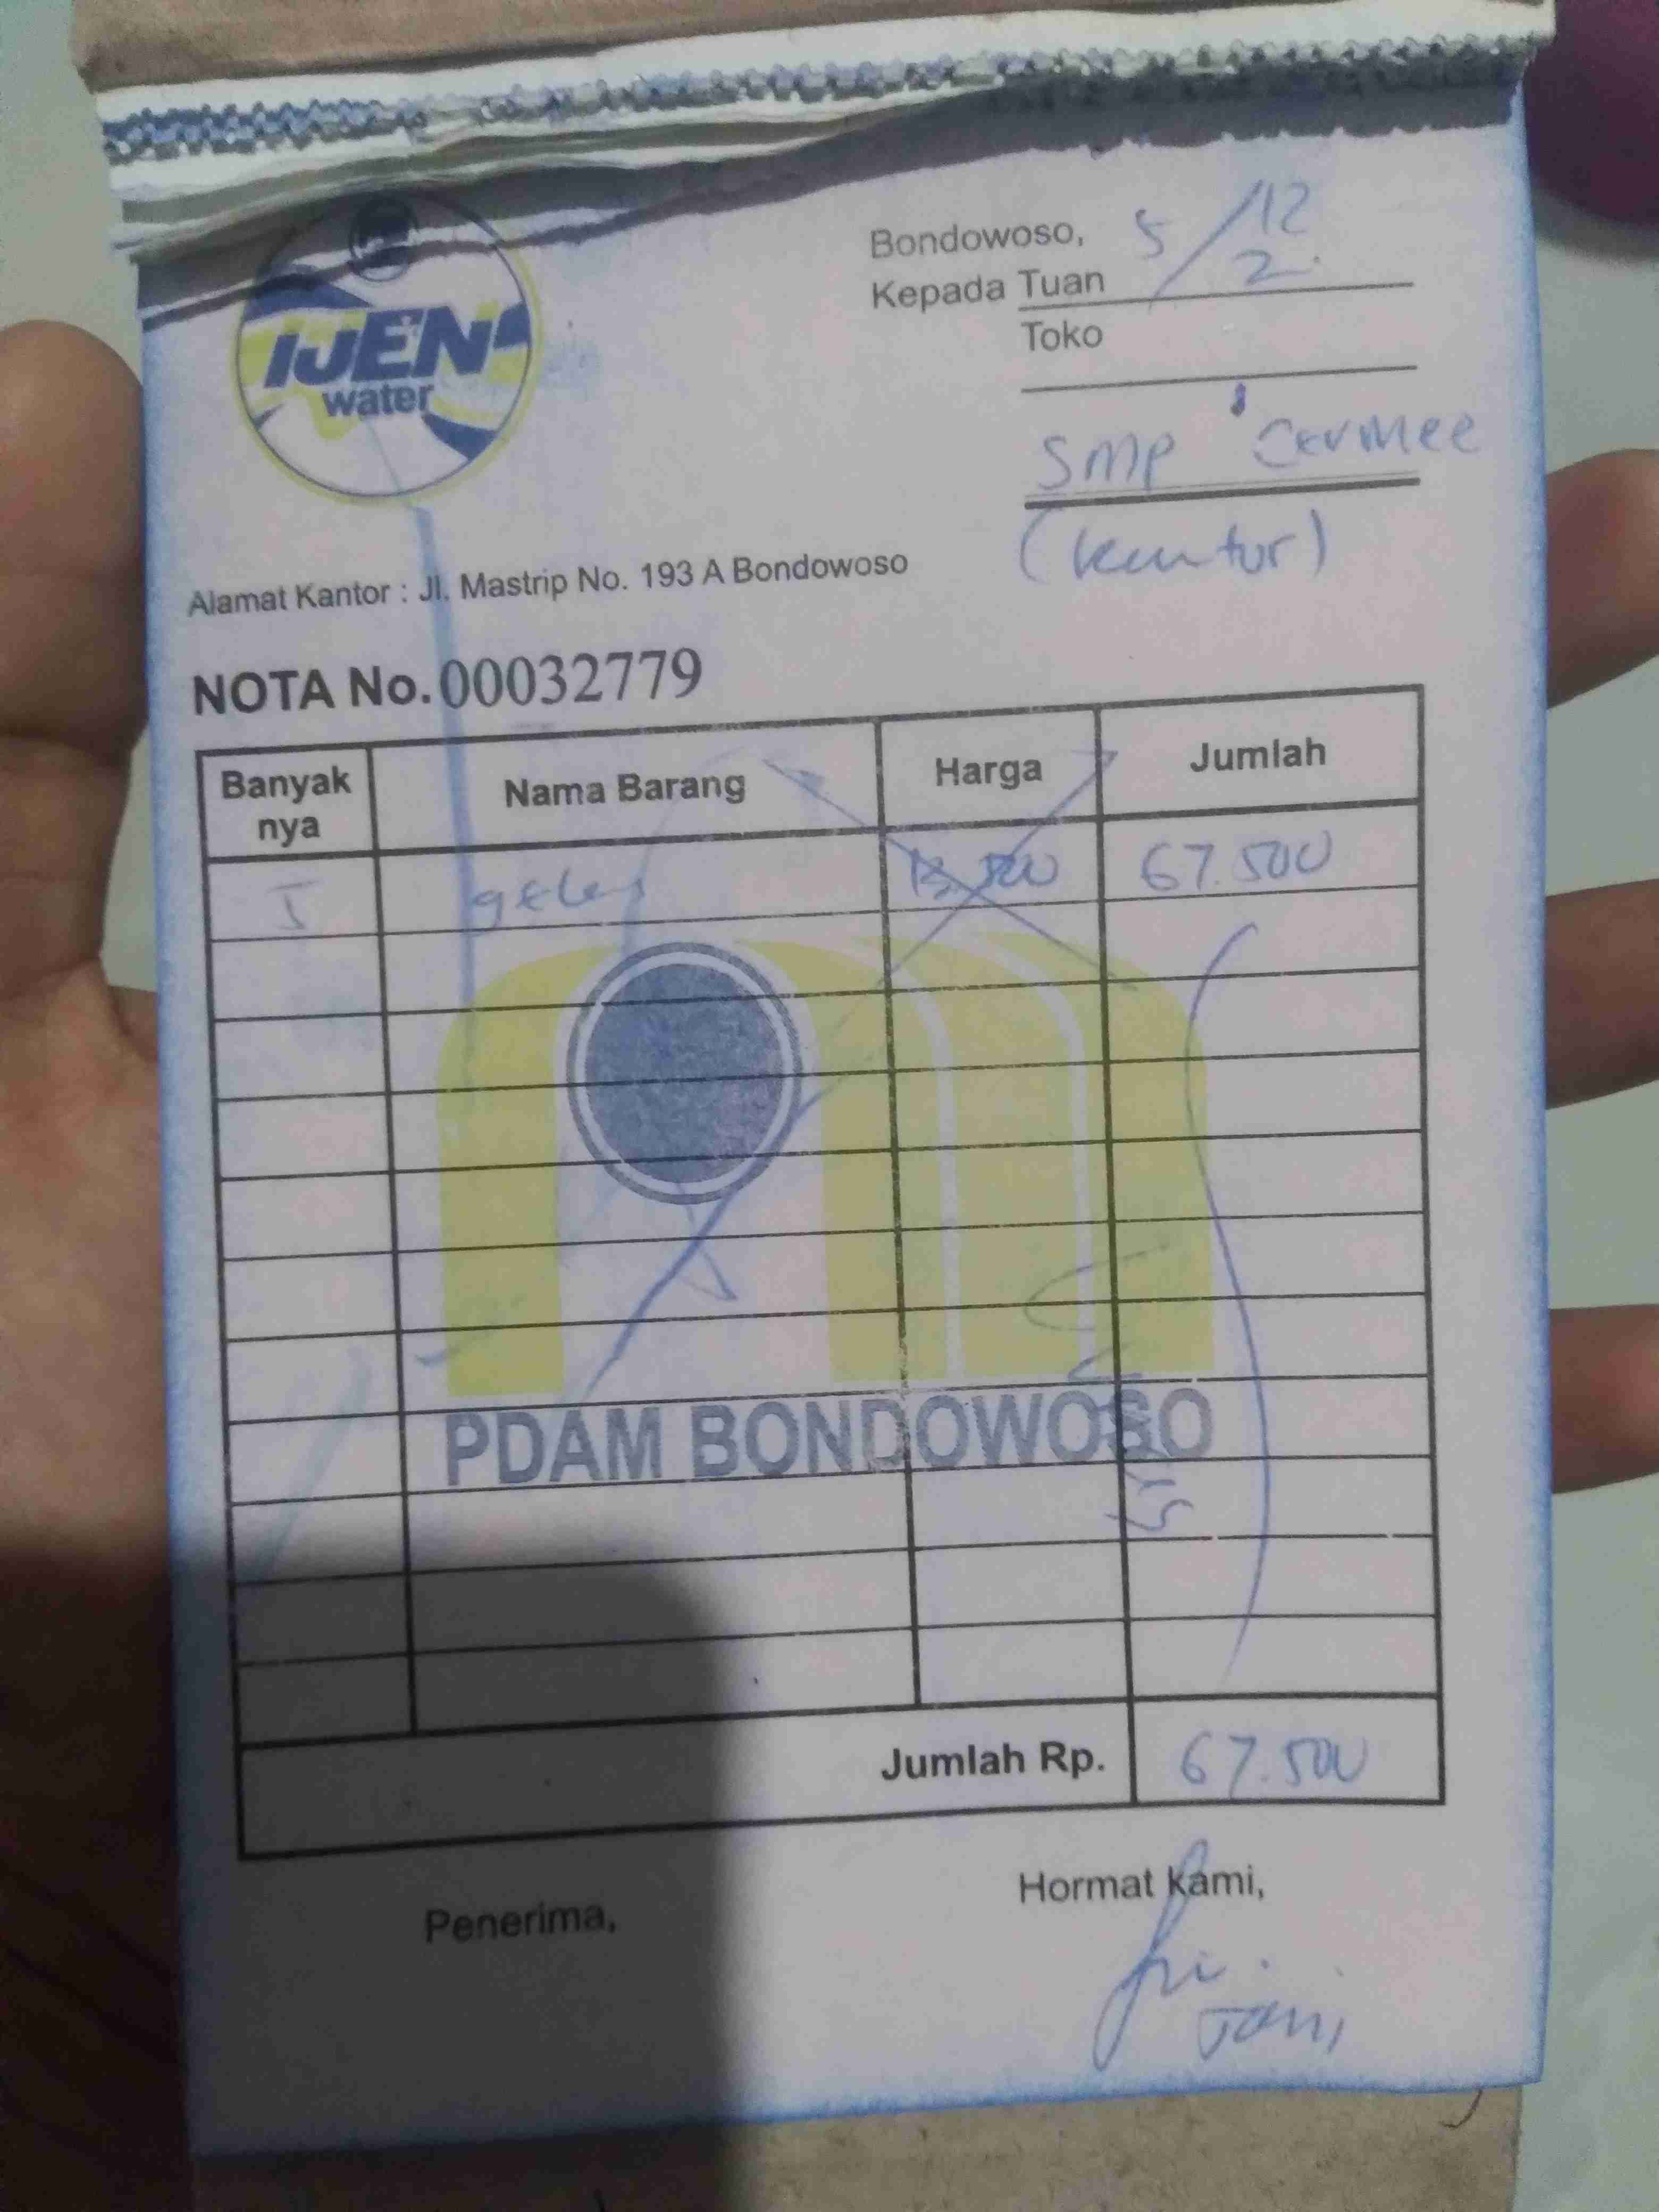 IJEN
water
Bondowoso, 5/12
2
Kepada Tuan
Toko
SMP Cermee
(Kantor)
Alamat Kantor : Jl. Mastrip No. 193 A Bondowoso
NOTA No. 00032779
Banyak nya Nama Barang Harga Jumlah
5 gelas 13.500 67.500
PDAM BONDOWOSO
Jumlah Rp. 67.500
Penerima, Hormat kami,